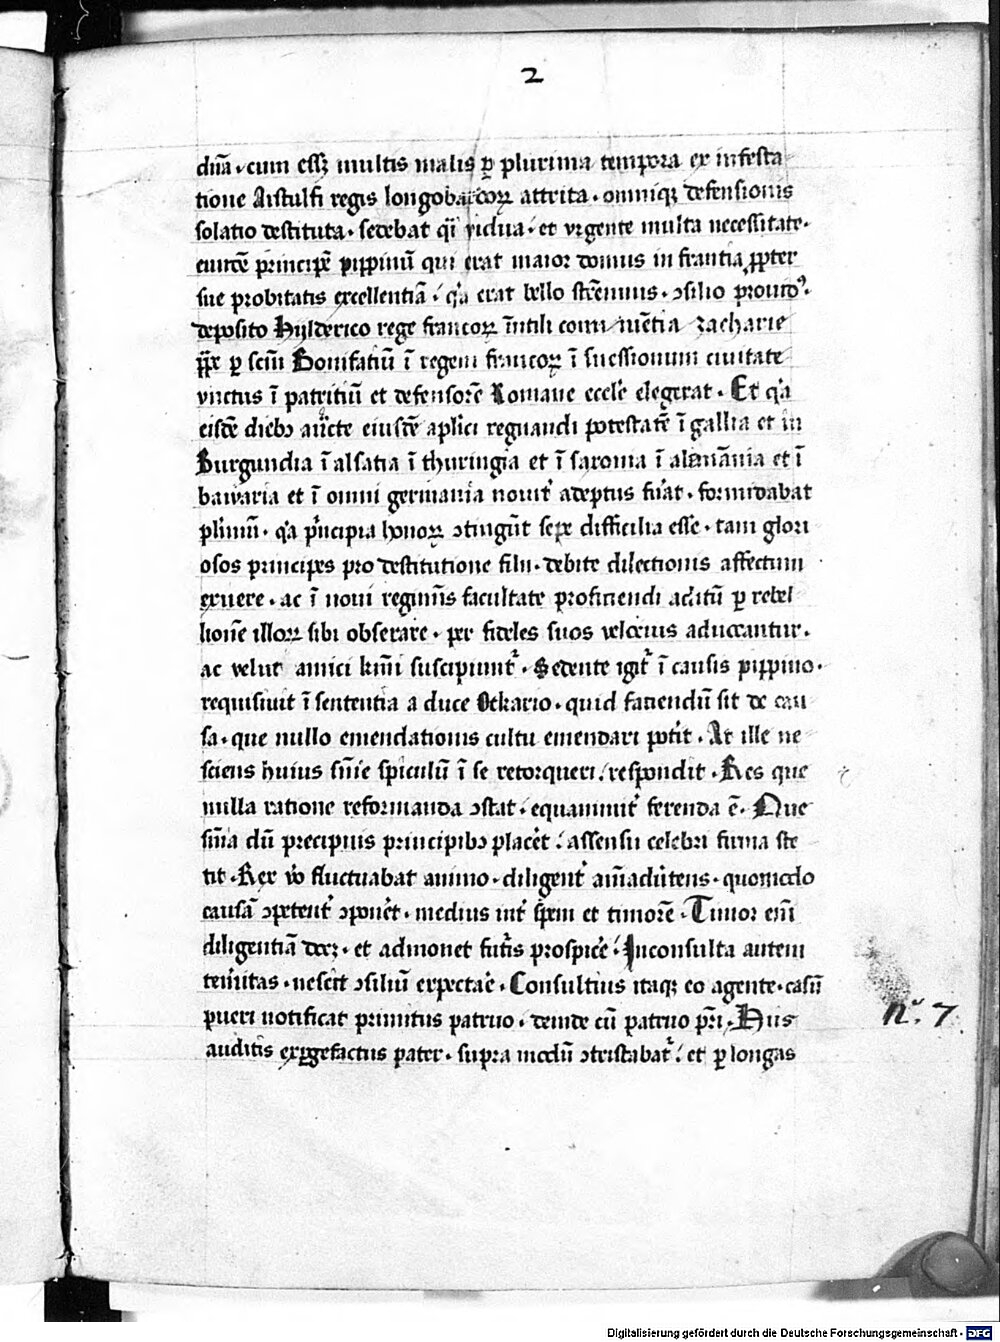 2
dn̄a · cum eſſꝫ multis malis ꝑ plurima tempora ex infeſta
tione Aiſtulfi regis longobardoꝝ attrita · omniqꝫ defenſionis
ſolatio deſtituta · ſedebat q̄i vidua · et vrgente multa neceſſitate ·
eundē prīncipē pippinū qui erat maior domus in frantia ꝓpter
ſue probitatis excellentiā · qꝛ erat bello ſtrēnuus · ꝯſilio prouidꝰ ·
depoſito Hylderico rege francoꝝ īutili coniuuētia zacharie
pp̄e ꝑ ſcm̄ Bonifatiū ī regem francoꝝ ī ſueſſionum ciuitate
vnctus ī patritiū et defenſorē Romane eccl̄e elegerat · Et qꝛ
eiſdē diebꝫ aūcte eiuſdē apl̄ici regnandi poteſtatē ī gallia et in
Burgundia ī alſatia ī thuringia et ī ſaxonia ī alemānia et ī
bawaria et ī omni germania nouit̓ adeptus fūat · formidabat
pl̓imū · qꝛ p̓ncipia honoꝝ ꝯtingūt ſepe difficilia eſſe · tam glori
oſos principes pro deſtitutione filii · debite dilectionis affectum
exuere · ac ī noui regiminīs facultate proficiendi aditū ꝑ rebel
lionē illoꝝ ſibi obſerare · per fideles ſuos velocius aduocantur ·
ac velut amici kīmi ſuſcipiunt̓ · Sedente igit̓ ī cauſis pippino ·
requiſiuit ī ſententia a duce Otkario · quid faciendū ſit de cau
ſa · que nullo emendationis cultu emendari potīt · At ille ne
ſciens huius ſn̄ie ſpiculū ī ſe retorqueri · reſpondit · Res que
nulla ratione reformanda ꝯſtat · equanimit̓ ferenda ē · Que
ſn̄ia dū precipuis principibꝫ placēt · aſſenſu celebri firma ſte
tit · Rex v̄o fluctuabat animo · diligent̓ aīaduītens · quomodo
cauſā ꝯpetent̓ ꝯponēt · medius int̓ ſpem et timorē · Timor em̄
diligentiā docꝫ · et admonet futūis proſpicē · Inconſulta autem
temītas · neſcit ꝯſiliū expectāe · Conſultius itaqꝫ eo agente · caſū
pueri notificat primitus patruo · deinde cū patruo pr̄i · Hiis
auditis expgefactus pater · ſupra modū ꝯtriſtabat̓ · et ꝑ longas
N̊. 7.
Digitalisierung gefördert durch die Deutsche Forschungsgemeinschaft - DFG